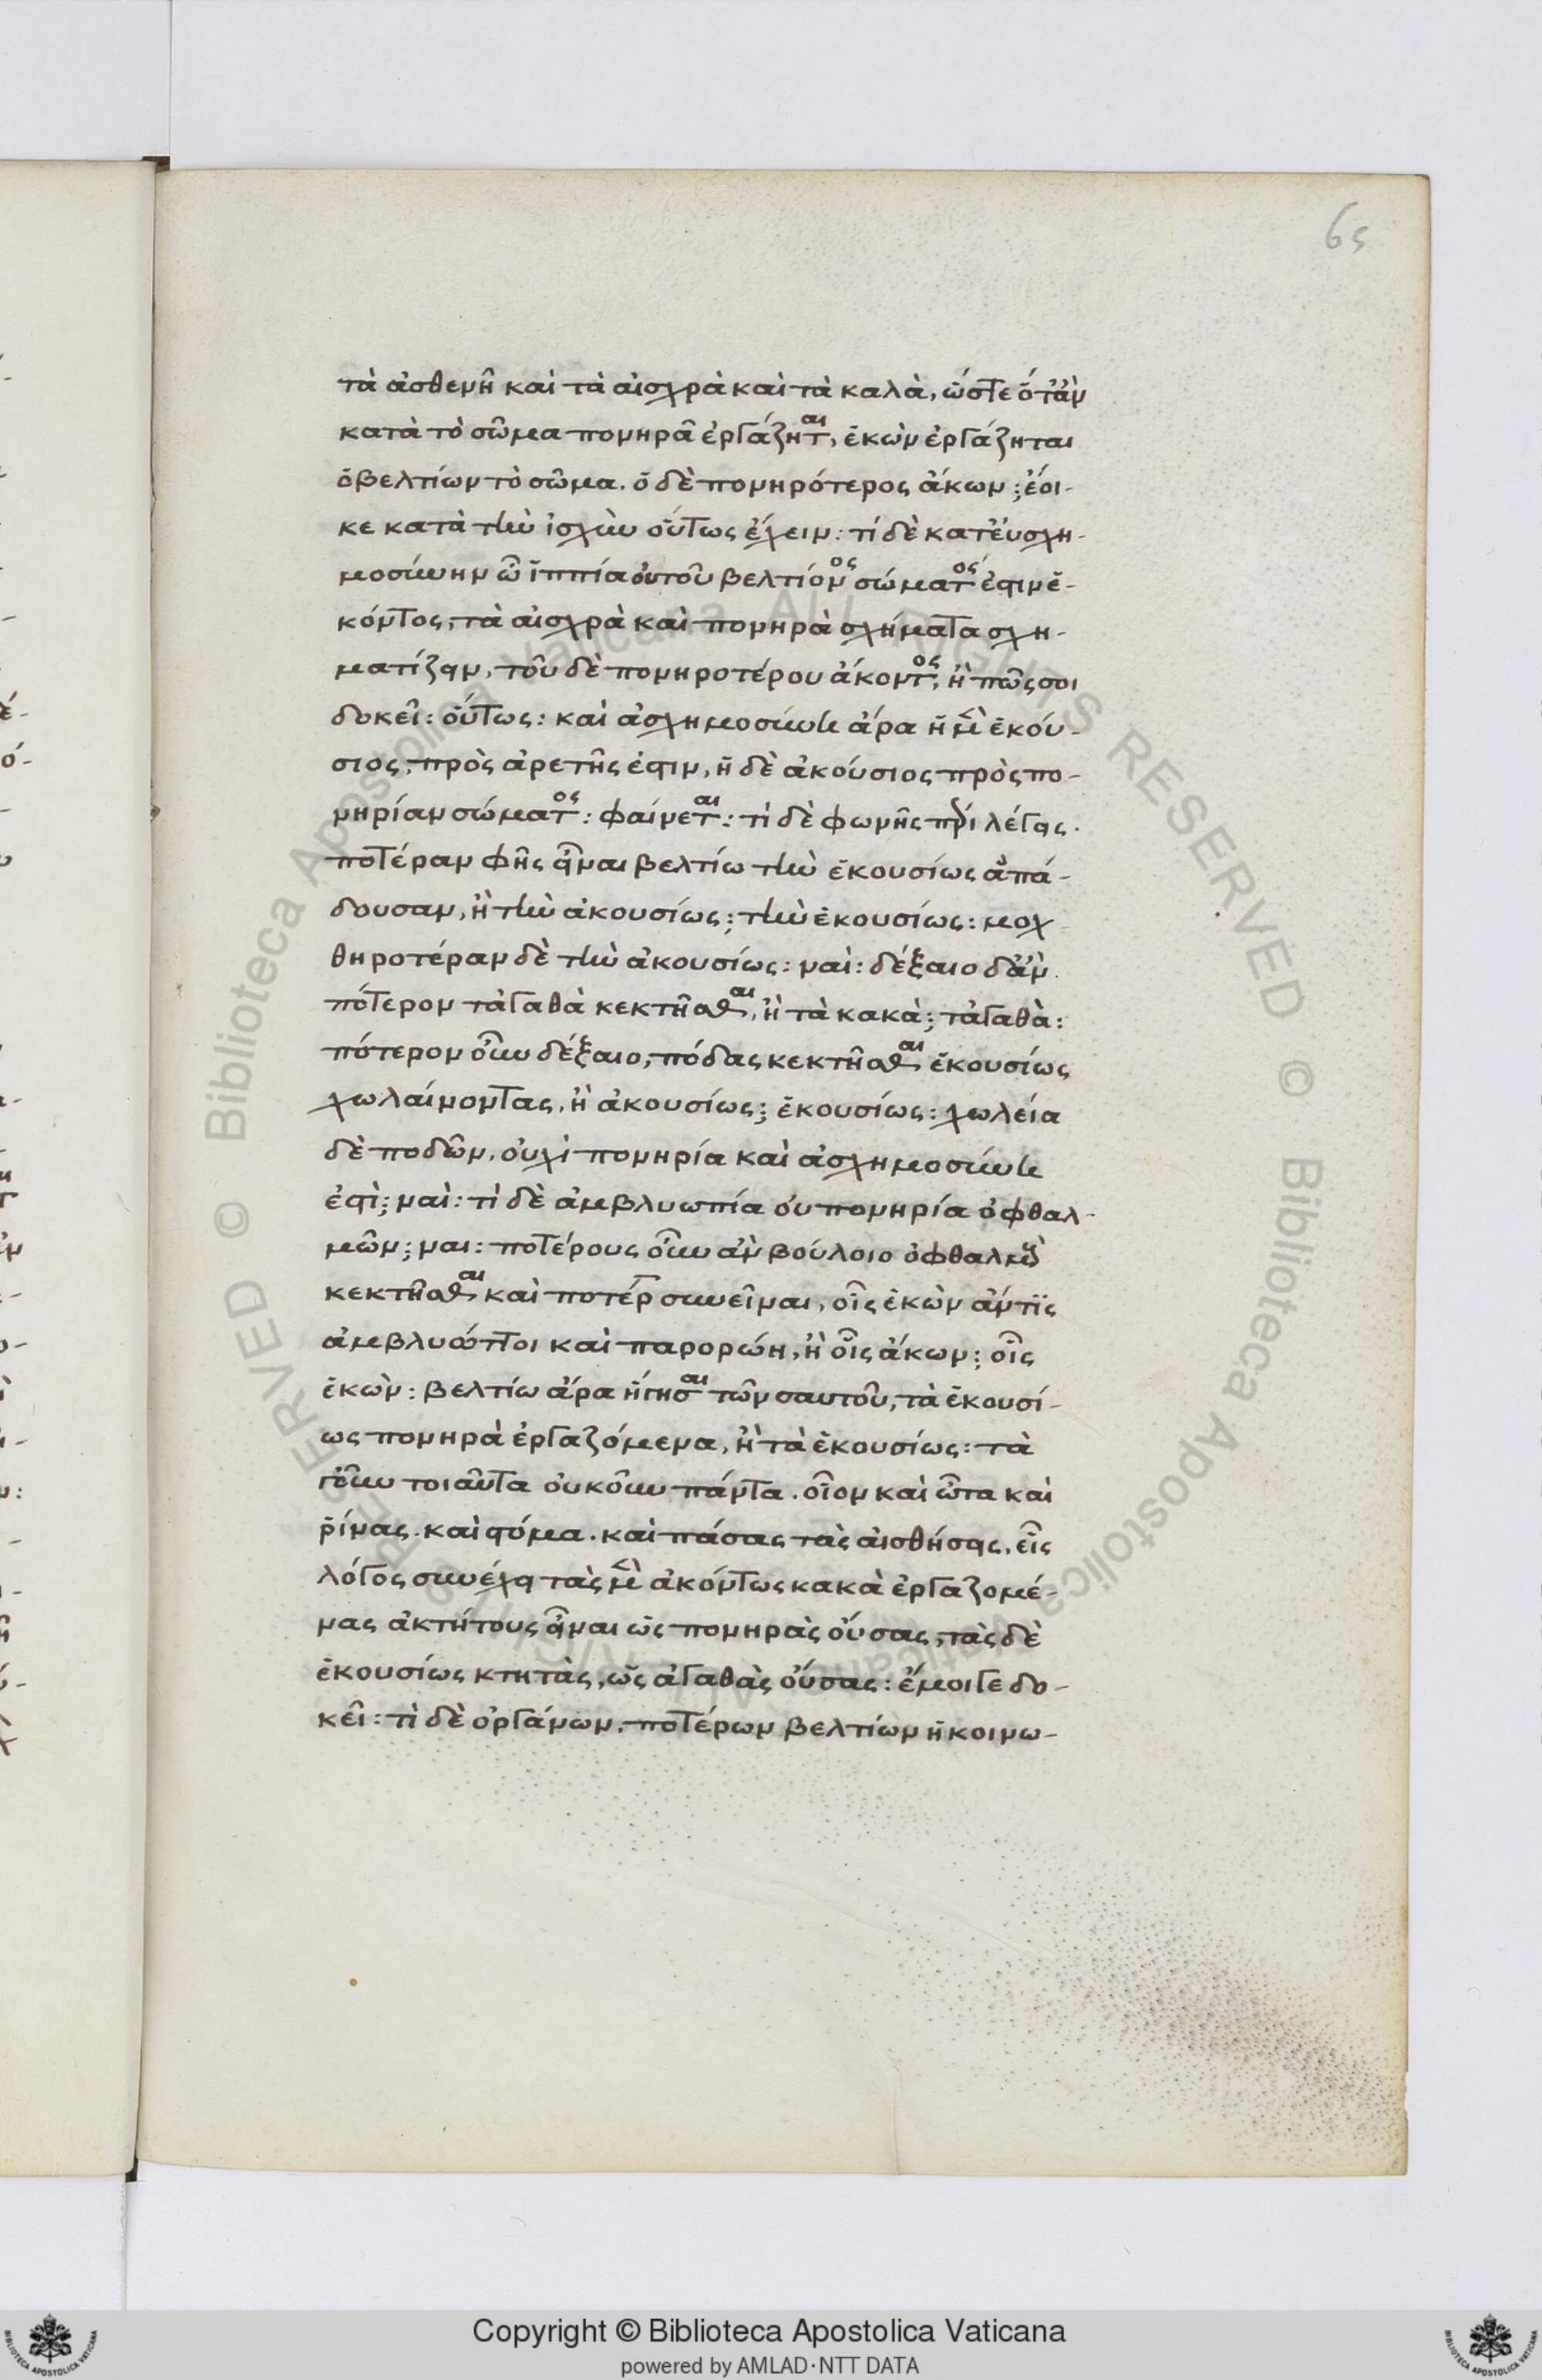 65
τὰ ἀσθενῆ καὶ τὰ αἰσχρὰ καὶ τὰ καλὰ, ὥστε ὅτἂν
κατὰ τὸ σῶμα πονηρᾶ ἐργάζηται, ἑκὼν ἐργάζηται
ὁ βελτίων τὸ σῶμα. ὁ δὲ πονηρότερος ἄκων; ἔοι-
κε κατὰ τὴν ἰσχὺν οὕτως ἔχειν: τί δὲ κατ' εὐσχη-
μοσύνην ὦ ἱππία οὐ τοῦ βελτίονος σώματός ἐστιν ἑ-
κόντος, τὰ αἰσχρὰ καὶ πονηρὰ σχήματα σχη-
ματίζειν, τοῦ δὲ πονηροτέρου ἄκοντος, ἢ πῶς σοι
δοκεῖ: οὕτως: καὶ ἀσχημοσύνη ἄρα ἡ μὲν ἑκού-
σιος, πρὸς ἀρετῆς ἐστιν, ἡ δὲ ἀκούσιος πρὸς πο-
νηρίαν σώματος: φαίνεται: τὶ δὲ φωνῆς πέρι λέγεις.
ποτέραν φῂς εἶναι βελτίω τὴν ἑκουσίως ἀπά-
δουσαν, ἢ τὴν ἀκουσίως; τὴν ἑκουσίως: μοχ
θηροτέραν δὲ τὴν ἀκουσίως: ναὶ: δέξαιο δἂν
πότερον τἀγαθὰ κεκτῆσθαι, ἢ τὰ κακὰ; τἀγαθὰ:
πότερον οὖν δέξαιο, πόδας κεκτῆσθαι ἑκουσίως
χωλαίνοντας, ἢ ἀκουσίως; ἑκουσίως: χωλεία
δὲ ποδῶν, οὐχὶ πονηρία καὶ ἀσχημοσύνη
ἐστὶ; ναὶ: τὶ δὲ ἀμβλυωπία οὐ πονηρία ὀφθαλ-
μῶν; ναι: ποτέρους οὖν ἂν βούλοιο ὀφθαλμοὺς
κεκτῆσθαι καὶ ποτέροις συνεῖναι, οἷς ἑκὼν ἄν τις
ἀμβλυώττοι καὶ παρορώη, ἢ οἷς ἄκων; οἷς
ἑκὼν: βελτίω ἄρα ἥγησαι τῶν σαυτοῦ, τὰ ἑκουσί-
ως πονηρὰ ἐργαζόμενα, ἢ τὰ ἑκουσίως: τὰ
γοῦν τοιαῦτα οὐκοῦν πάντα. οἷον καὶ ὦτα καὶ
ῥίνας. καὶ στόμα. καὶ πάσας τὰς αἰσθήσεις, εἷς
λόγος συνέχει τὰς μὲν ἀκόντως κακὰ ἐργαζομέ-
νας ἀκτήτους εἶναι ὡς πονηρὰς οὔσας, τὰς δὲ
ἑκουσίως κτητὰς, ὡς ἀγαθὰς οὔσας: ἔμοιγε δο-
κεῖ: τὶ δὲ ὀργάνων, ποτέρων βελτίων ἡ κοινω-
Copyright © Biblioteca Apostolica Vaticana
powered by AMLAD·NTT DATA